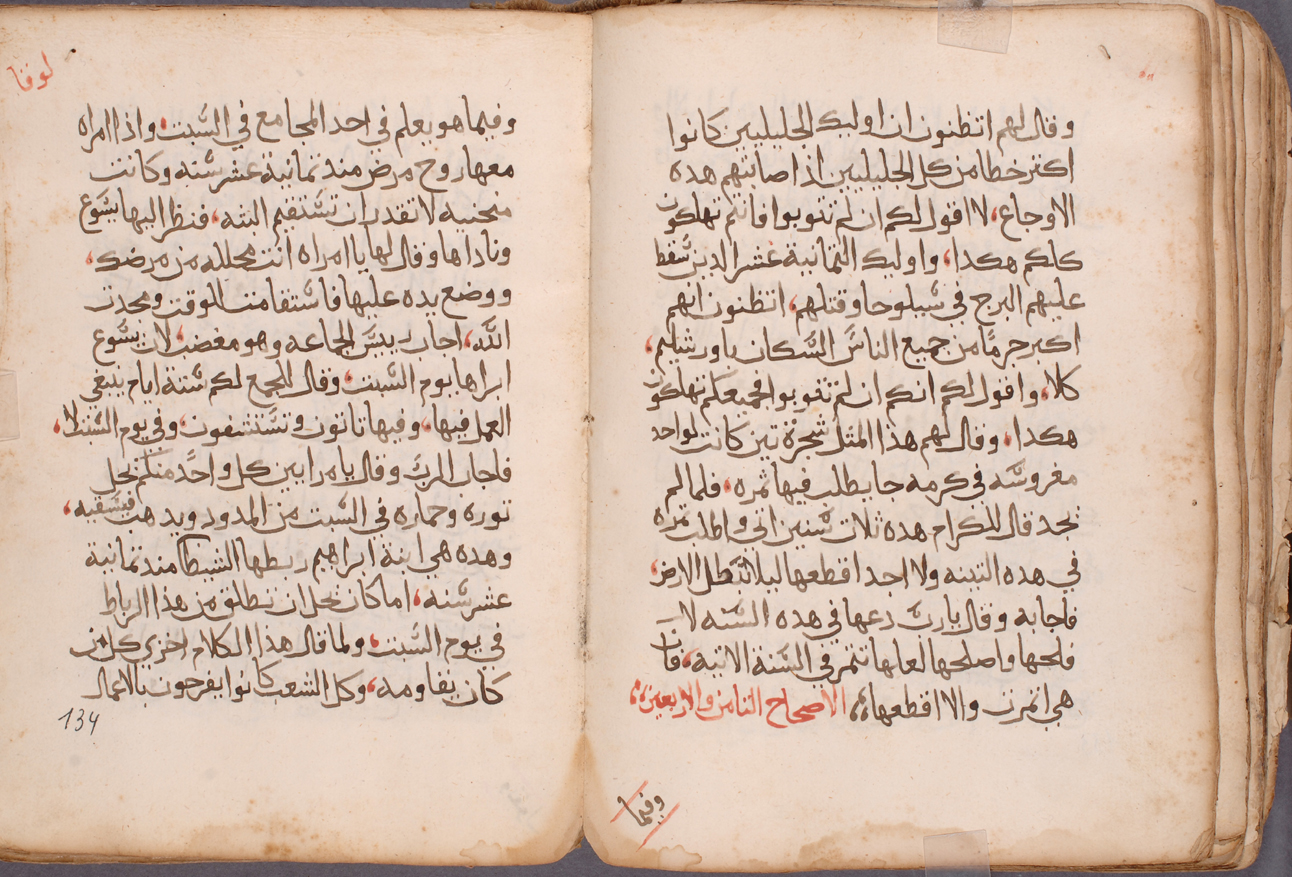 وقال لهم اتظنون ان اوليك الجليليين كانوا
اكتر خطا من كل الجليليين اذ اصابتهم هده
الاوجاع، لا اقول لكم ان لم تتوبوا فانتم تهلكون
كلكم هكدا، واوليك التمانية عشر الدين سقط
عليهم البرج في شيلوحا وقتلهم، اتظنون انهم
اكبر جرمًا من جميع الناس السكان باورشليم،
كلا، واقول لكم انكم ان لم تتوبوا فجميعكم تهلكون
هكدا، وقال لهم هذا المتل شجرة تين كانت لواحد
مغروسه في كرمه جا يطلب فيها ثمره، فلما لم
يجد قال للكرام هده ثلات سنين اتي واطلب تمره
في هده التينه ولا اجد اقطعها ليلا تبطل الارض،
فاجابه وقال يا رب دعها في هده السنه لا
فلحها واصلحها لعلها تتمر في السنة الاتيه، فان
هي اتمرت والا اقطعها، الاصحاح التامن والاربعين،
وفيما
لوقا
وفيما هو يعلم في احد المجامع في السبت، واذا امراه
معها روح مرض مند تمانية عشر سنه وكانت
منحنيه لا تقدر ان تستقيم البته، فنظر اليها يسوع
وناداها وقال لها يا امراه انت محلله من مرضك،
ووضع يده عليها فاستقامت للوقت ومجدت
الله، اجاب رييس الجماعه وهو مغضب، لان يسوع
ابراها يوم السبت، وقال للجمع لكم ستة ايام ينبغي
العمل فيها، وفيها تاتون وتستشفون، وفي يوم السبت لا،
فاجاب الرب وقال يا مرايين كل واحد منكم يحل
توره وحماره في السبت من المدود ويدهب فيسقيه،
وهده هي ابنة ابراهيم ربطها الشيطان مند تمانية
عشر سنه، اما كان يحل ان تطلق من هذا الرباط
في يوم السبت، ولما قال هذا الكلام اخزي كل من
كان يقاومه، وكل الشعب كانوا يفرحون بالاعمال
134